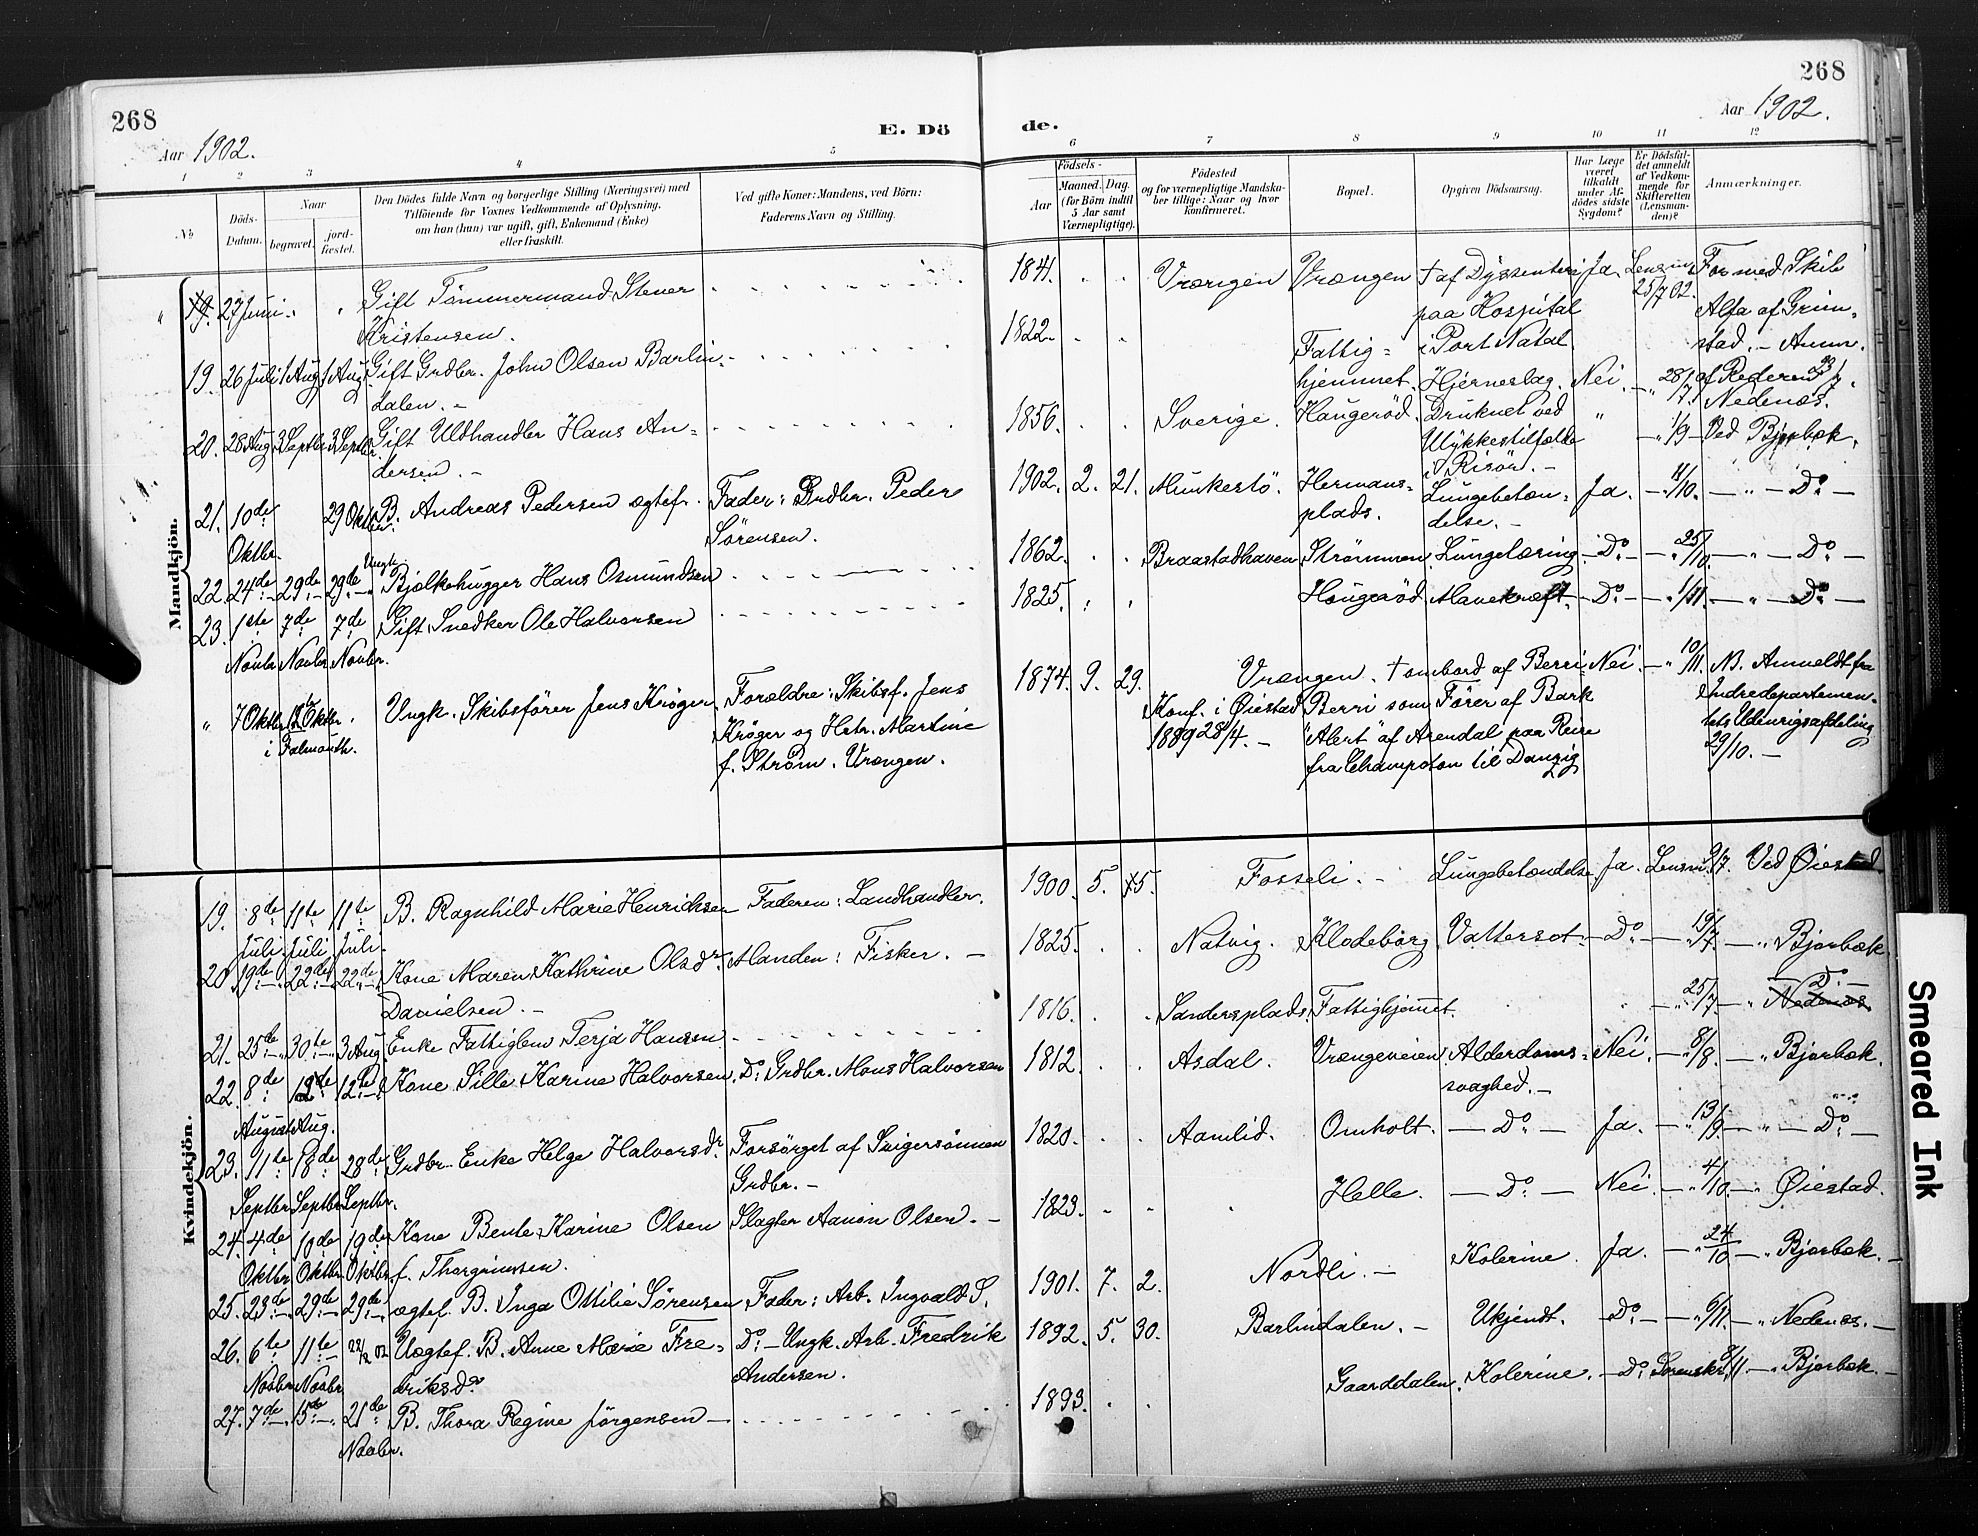 268
Aar 1902.
E. Dö
de.
268
Aar 1902.
1
2
3
4
5
6
7
8
9
10
11
12
No
Döds-Datum.
Naar
begravet.
jord-fæstet.
Den Dödes fulde Navn og borgerlige Stilling (Næringsvei) med
Tilföiende for Voxnes Vedkommende af Oplysning,
om han (hun) var ugift, gift, Enkemand (Enke)
eller fraskilt.
Ved gifte Koner: Mandens, ved Börn:
Faderens Navn og Stilling.
Födsels-
Aar
Maaned. Dag.
(for Börn indtil
5 Aar samt
Værnepligtige).
Födested
og for værnepligtige Mandska-
ber tillige: Naar og hvor
konfirmeret.
Bopæl.
Opgiven Dödsaarsag.
Har Læge
været
tilkaldt
under Af-
dödes sidste
Sygdom?
Er Dödsfal-
det anmeldt
af Vedkom-
mende for
Skifteretten
(Lensman-
den)?
Anmærkninger.
Mandkjön.
" 19. 27 Juni " " Gift Tömmermand Stener
Kristensen.
1841. Vrængen Vrængen † af Dyssenteri Ja. Lensm. 25/7 02. For med Skib
paa Hospital
i Port Natal.
Alfa af Grim-
stad. - Anm.
af Rederen
19. 26 Juli 1 Aug 1 Aug. Gift Grdbr. John Olsen Barlin-
dalen. -
1822. Fattig-
hjemmet. Hjerneslag. Nei. - " 28/7. Nedenæs.
20. 28 Aug. 3 Septbr 3 Septbr. Gift Uldhandler Hans An-
dersen. -
1856. Sverige. Haugeröd. Druknet ved
Ulykkestilfælde
i Risör. -
" - " 1/9 - Ved Bjorbæk.
21. 10de
Oktbr. 29 Oktbr. B. Andreas Pedersen ægtef. Fader: Grdbr. Peder
Sörensen.
1902. 2. 21. Munkestö. Hermans-
plads. Lungebetæn-
delse. - Ja. - " 11/10. - " - Do -
22. 24de - 29de - 29de - Ungk.
Bjelkehugger Hans Osmundsen
1862. Braastadhaven Strömmen Lungetæring - Do - - " 25/10. - " - Do -
23. 1ste
Novbr 7de
Novbr 7de
Novbr. Gift Snedker Ole Halvorsen
1825. Haugeröd Mavekræft. - Do - - " 1/11. - " - Do -
" 7 Oktbr 12te Oktbr.
i Falmouth. Ungk. Skibsförer Jens Kröger. Forældre: Skibsf. Jens
Kröger og Hstr. Martine
f. Ström. Vrængen.
1874. 9. 29. Vrængen. † ombord af Berri- Nei. - " 10/11. N. Anmeldt fra
Konf. i Öiestad Berri som Förer af Bark
1889 28/4. - "Alert" af Arendal paa Reise
fra Champoton til Danzig
Indredepartemen-
tets Udenrigsafdeling
29/10. -
Kvindekjön.
19. 8de
Juli 11te
Juli 11te
Juli. B. Ragnhild Marie Henriksen Faderen: Landhandler.
1900. 5. 15. Fosseli. - Lungebetændelse Ja. Lensm. 9/7. Ved Öiestad.
20. 19de - 22de - 22de - Kone Maren Kathrine Olsdr. Manden: Fisker. -
Danielsen. -
1825. Natvig. Klodeborg Vattersot - Do - - " 19/7 - " Bjorbæk
21. 25de - 30te - 3 Aug. Enke Fattiglem Terja Hansen
1816. Sandersplads. Fattighjemmet. - " 25/7 - " Nedenæs Do -
22. 8de
August 12de
Aug. 12te - Kone Sille Karine Halvorsen. Do Grdbr. Mons Halvorsen
1812. Asdal. Vrængeveien Alderdoms-
svaghed. - Nei. - " 8/8. - " Bjorbæk.
23. 11te
Septbr 18de
Septbr 28de
Septbr. Grdbr. Enke Helge Halvorsdr. Forsörget af Svigersönnen
Grdbr. -
1820. Aamlid. Omholt. - Do - Ja. - " 13/9 - " - Do -
24. 4de
Oktbr 10de
Oktbr 19de
Oktbr. Kone Bente Karine Olsen Slagter Aanon Olsen. -
f. Thorgrimsen.
1823. Helle. - Do - Nei. - " 4/10. - " Öiestad.
25. 23de - 29de - 29de - ægtef. B. Inga Ottilie Sörensen Fader: Arb. Ingvald S.
1901. 7. 2. Nordli. - Kolerine. Ja. - " 24/10 - " Bjorbæk. -
26. 6te
Novbr 11te
Novbr 22/2 03 Uægtef. B. Anne Marie Fre-
driksdr. Do - Ungk. Arb. Fredrik
Andersen.
1892. 5. 30. Barlindalen. - Ukjendt. - Do - - " 6/11. - " Nedenæs. -
27. 7de - 15de - 21de
Novbr. B. Thora Regine Jörgensen -
1893. Gaarddalen. Kolerine. - Do Sorenskr. 8/11 - " Bjorbæk. -
Smeared Ink